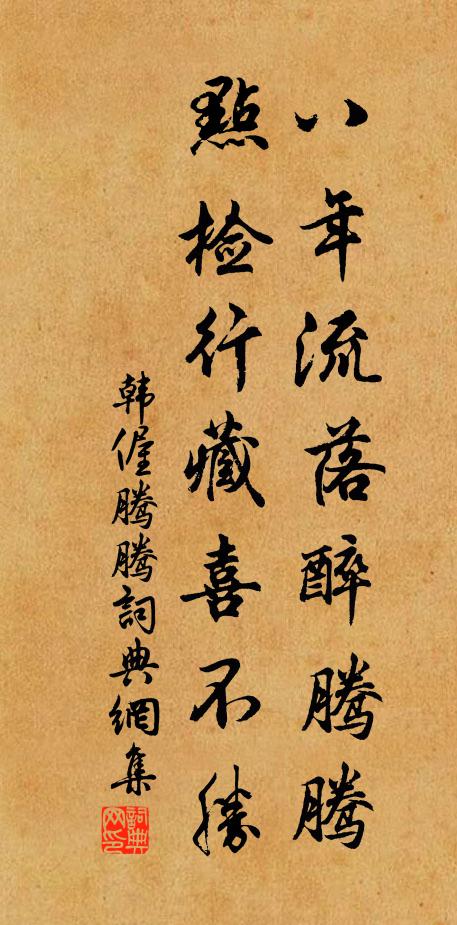 八年流落醉騰騰
點檢行藏喜不勝
韩偓騰騰詞典網集
詞典網印